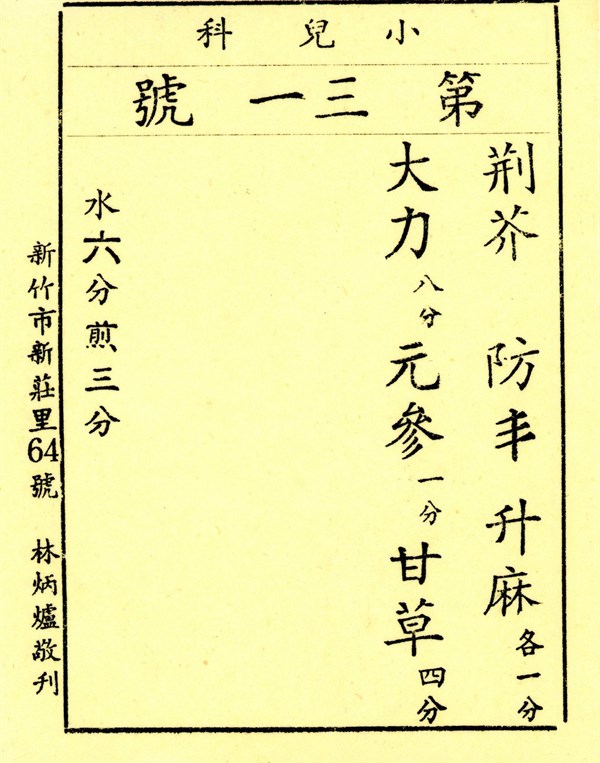 小兒科
第三一號
荆芥 防丰 升麻各一分
大力八分 元參一分 甘草四分
水六分煎三分
新竹市新莊里64號 林炳爐敬刋